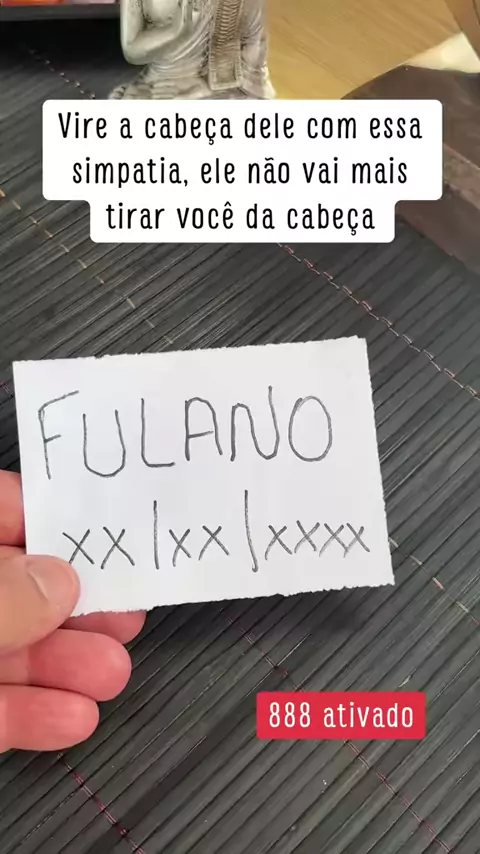 Vire a cabeça dele com essa
simpatia, ele não vai mais
tirar você da cabeça
FULANO
xx|xx|xxxx
888 ativado